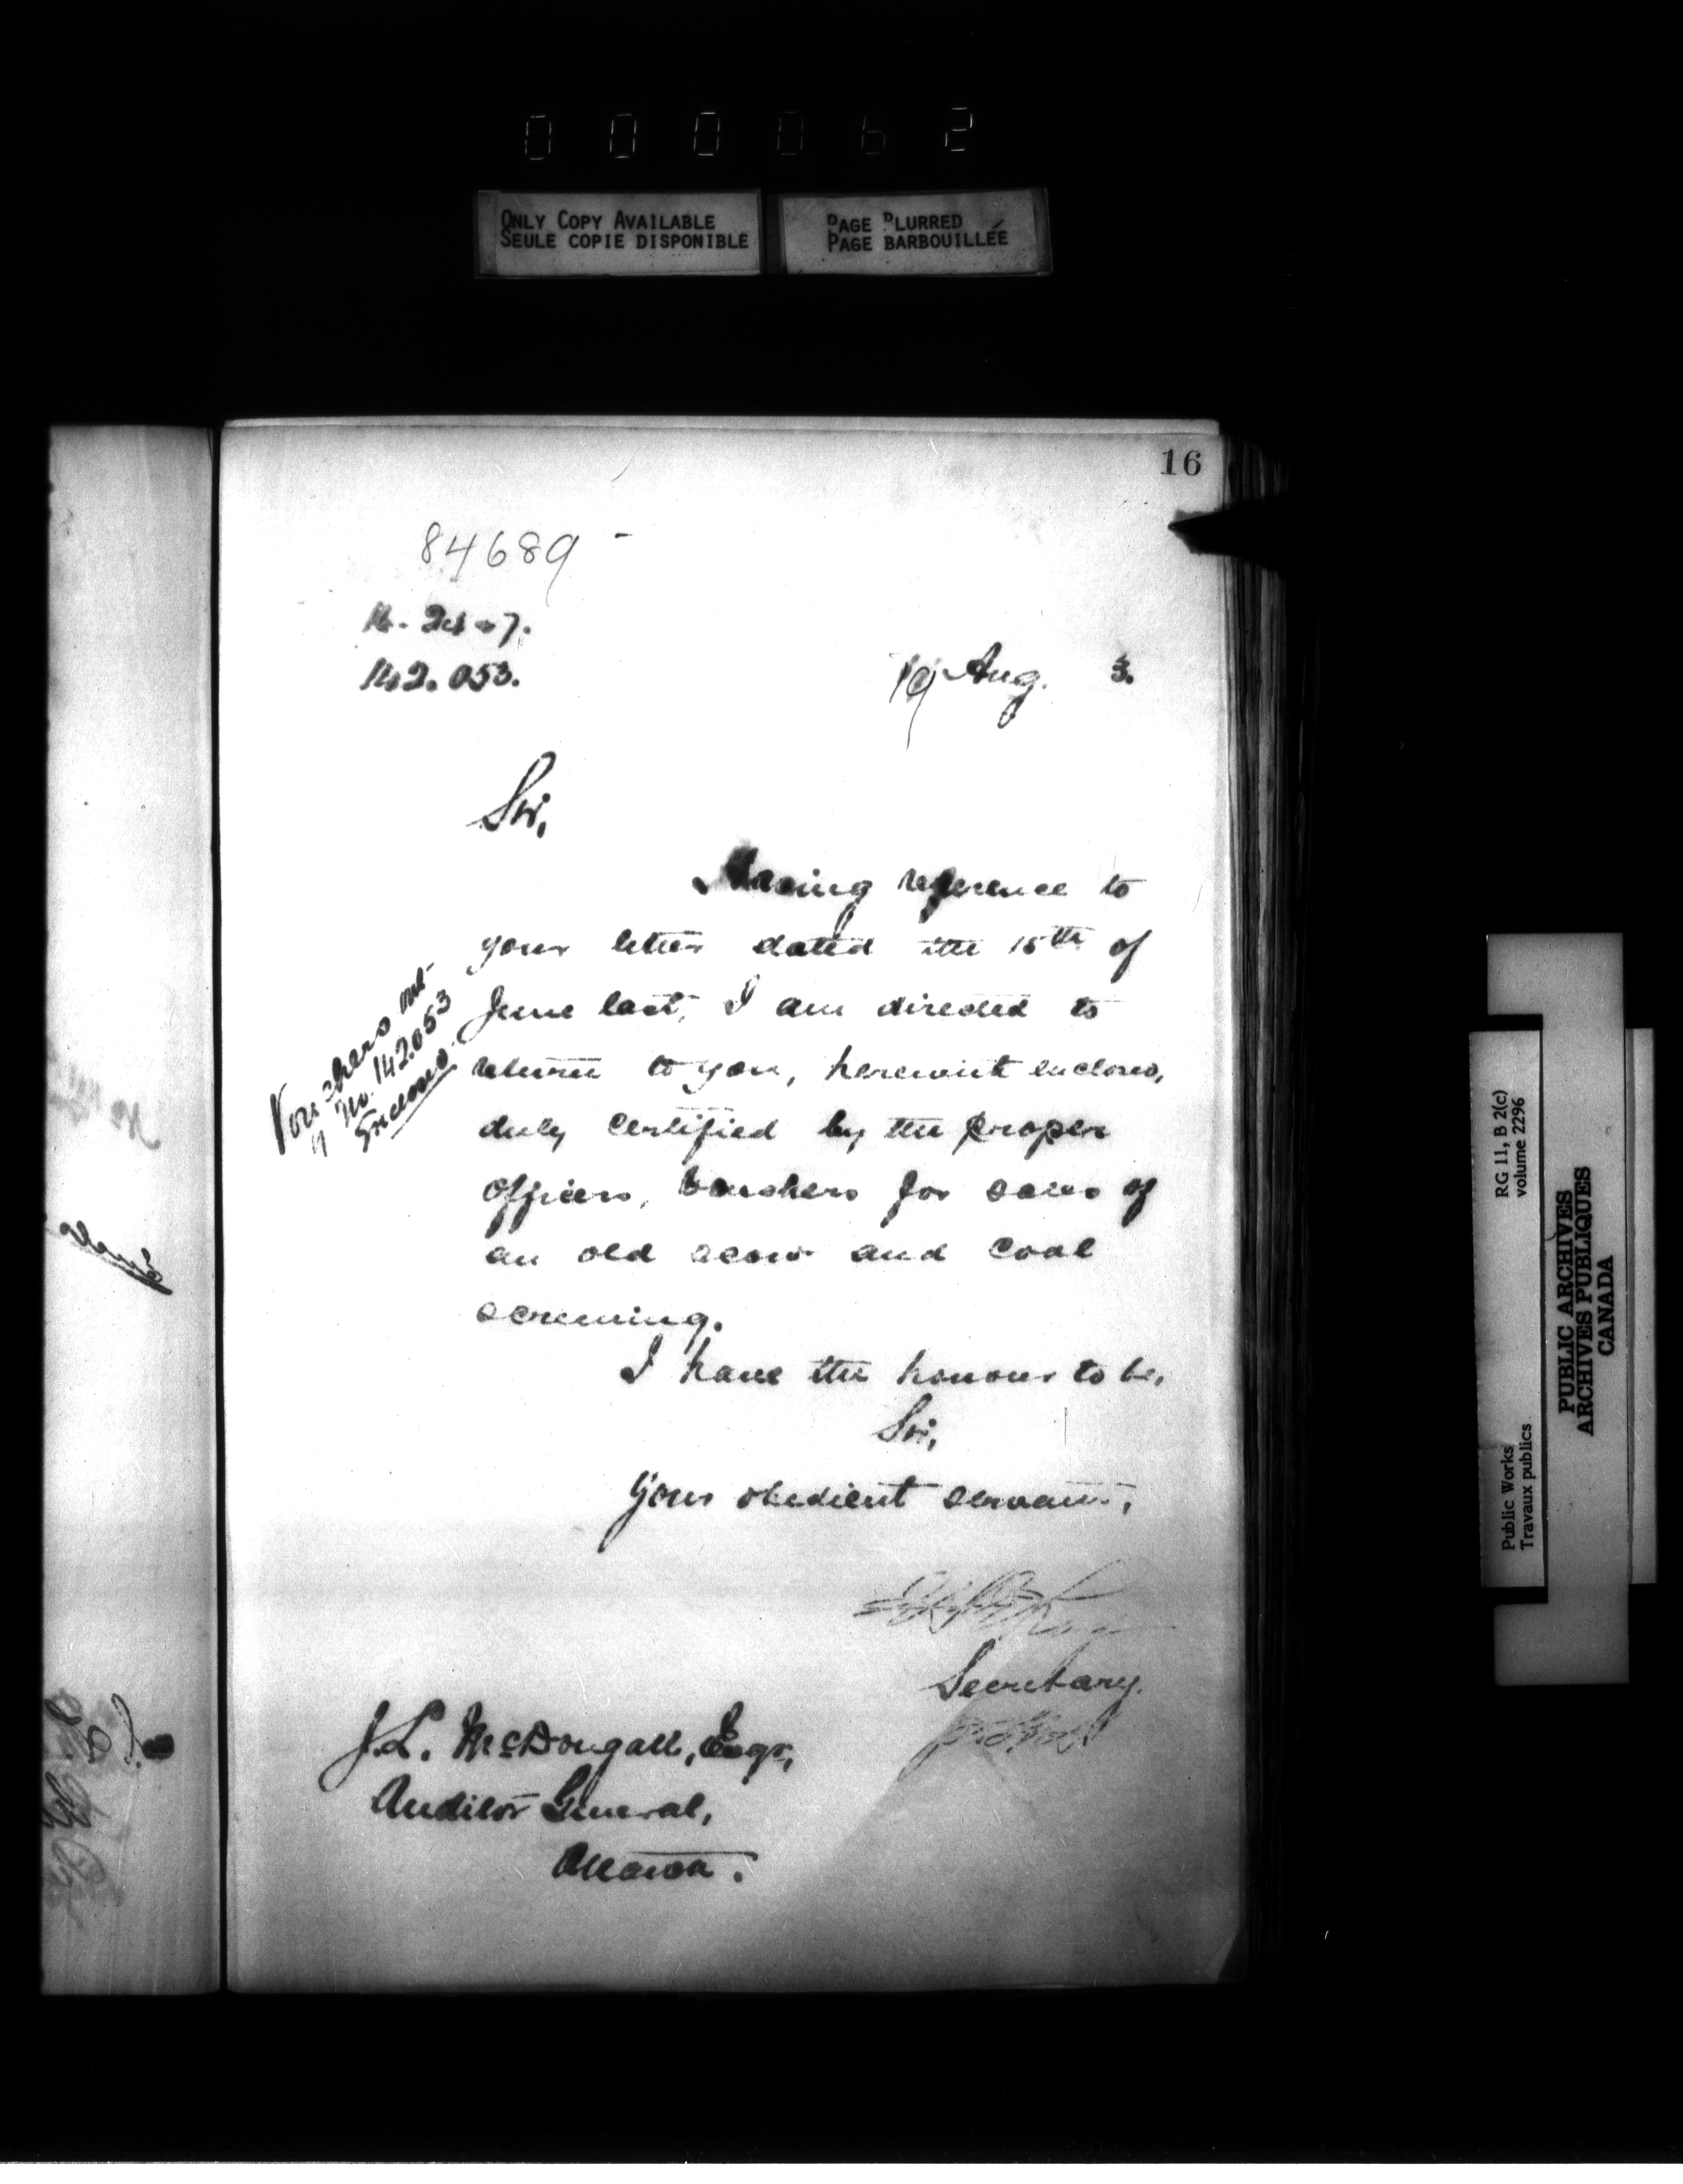 000062
ONLY COPY AVAILABLE
SEULE COPIE DISPONIBLE
PAGE BLURRED
PAGE BARBOUILLÉE
16
84689 -
142.053.
19 Aug. 3.
Sir,
Having reference to
your letter dated the 15th of
June last, I am directed to
return to you, herewith enclosed,
duly certified by the proper
officers, vouchers for sales of
an old scow and coal
screening.
I have the honour to be,
Sir,
Your obedient servant,
Secretary.
J. L. McDougall, Esqr,
Auditor General,
Ottawa.
Vouchers out
of No. 142.053
Enclosed.
Public Works
Travaux publics
RG 11, B 2(c)
volume 2296
PUBLIC ARCHIVES
ARCHIVES PUBLIQUES
CANADA